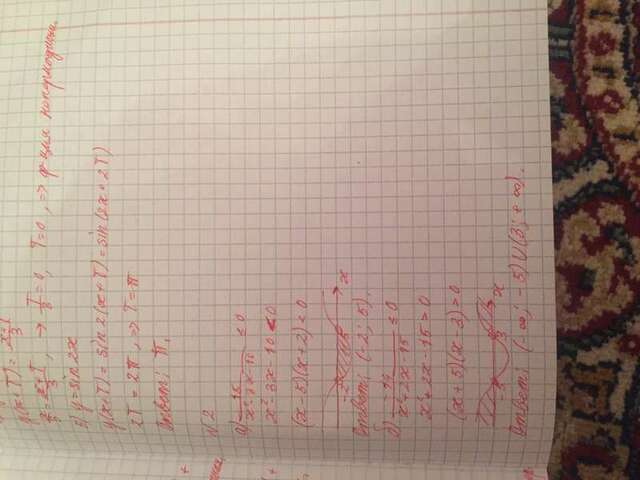 y(x+T) = (x+T)/3
x/3 = (x+T)/3, → T/3 = 0, T=0, => ф-ция непериодична.
y = sin 2x
y(x+T) = sin 2(x+T) = sin(2x+2T)
2T = 2π, => T = π
Ответ: π.
№2
а) 15/(x²-3x-10) ≤ 0
x²-3x-10 < 0
(x-5)(x+2) < 0
-2 5 x
Ответ: (-2; 5).
б) -14/(x²+2x-15) ≤ 0
x²+2x-15 > 0
(x+5)(x-3) > 0
-5 3 x
Ответ: (-∞; -5)∪(3; +∞).